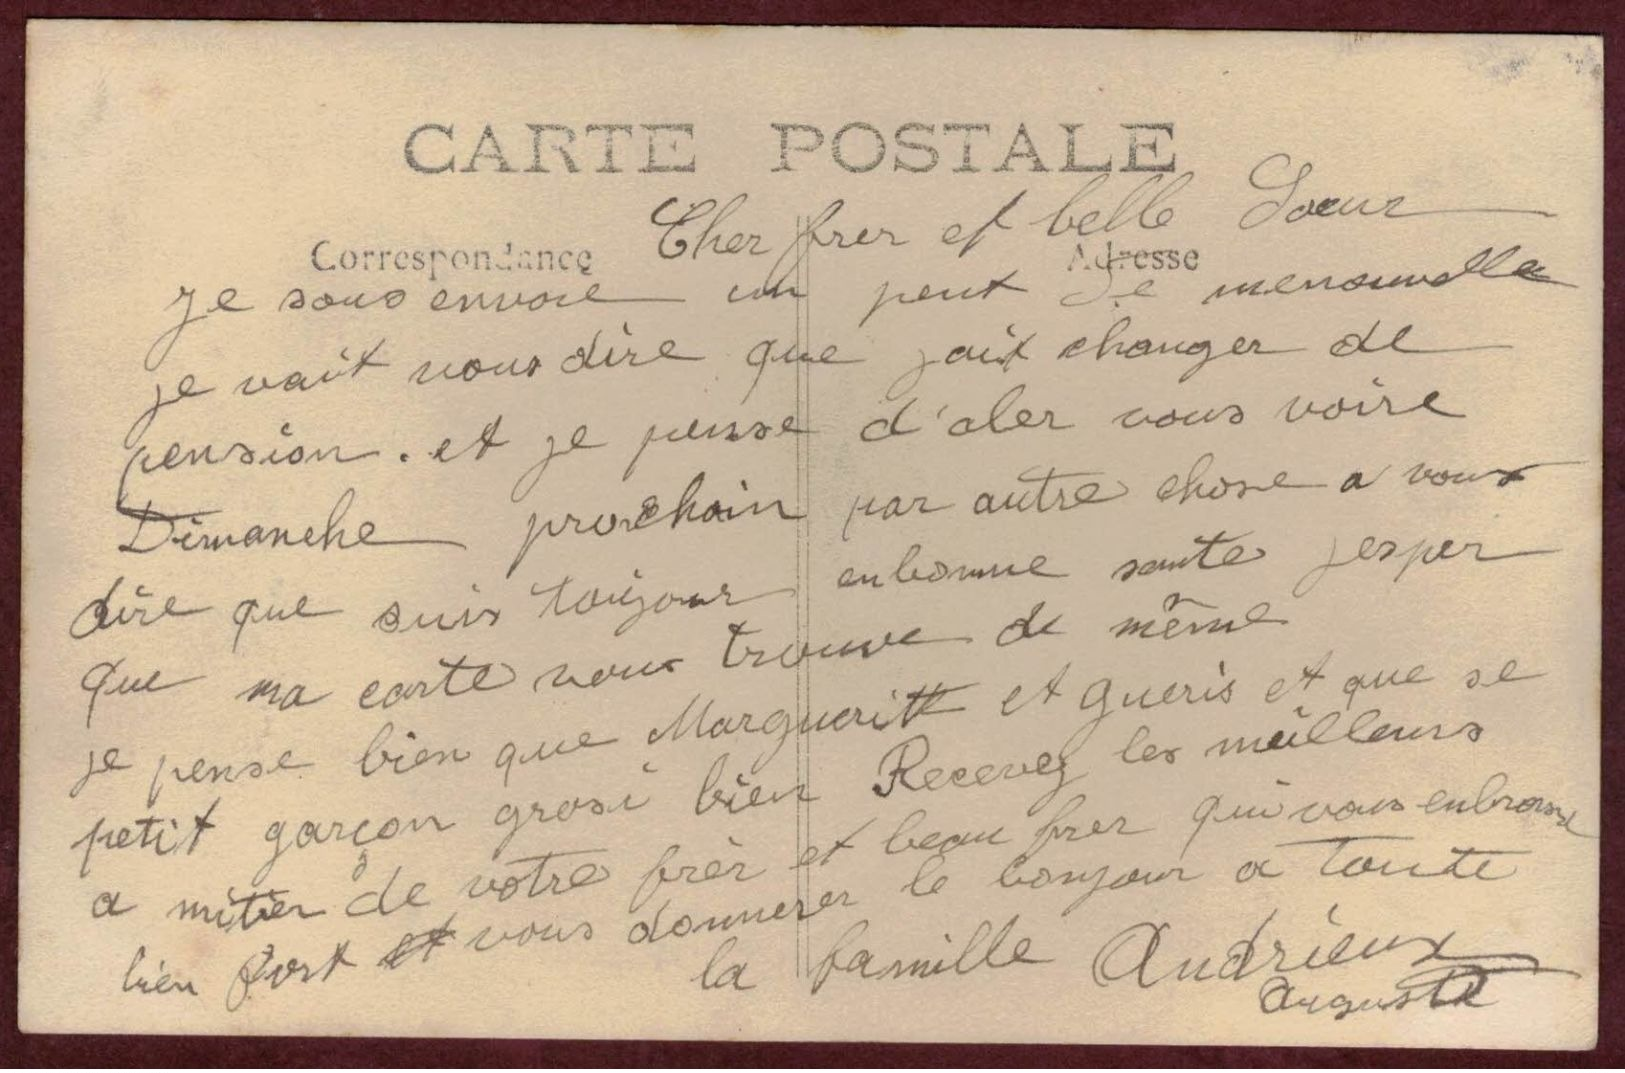 CARTE POSTALE
Correspondance
Adresse
Cher frer et belle Soeur
je vous envoie un peut de menouvelle
je vait vous dire que jait changer de
pension. et je pense d'aler vous voire
Dimanche prochain par autre chose a vous
dire que suis toujour enbonne sante jesper
que ma carte vous trouve de même
je pense bien que Margueritt et gueris et que se
petit garçon grosi bien Recevez les meilleurs
a mitier de votre frèr et beau frer qui vous enbrasse
bien fort et vous donnerer le bonjour a toute
la famille Andrieux
Auguste